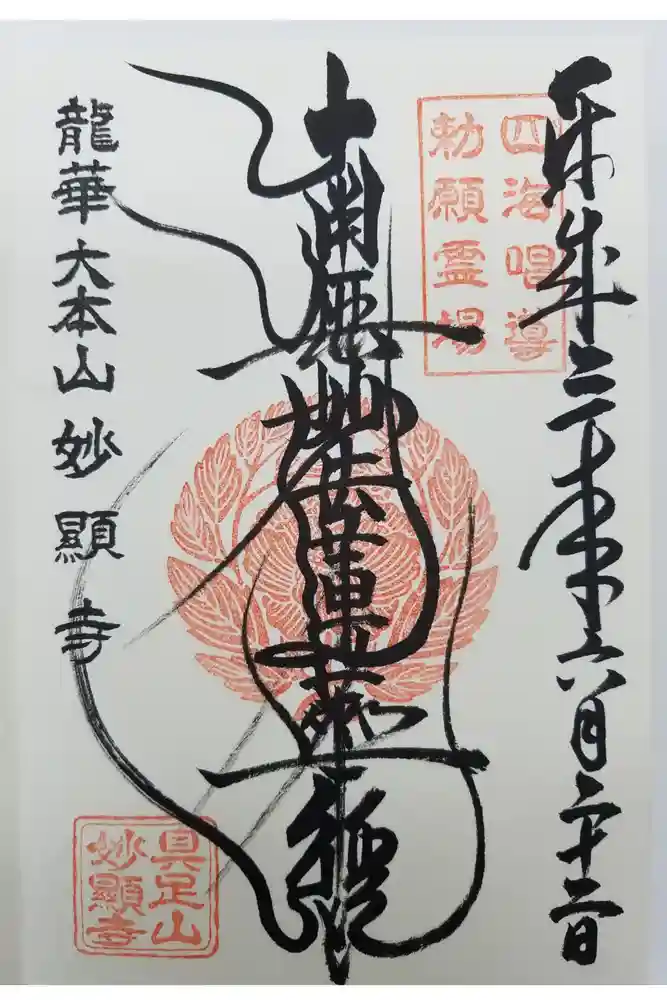 平成三十年六月二十二日
四海唱導
勅願霊場
南無妙法蓮華經
龍華 大本山 妙顯寺
具足山
妙顯寺